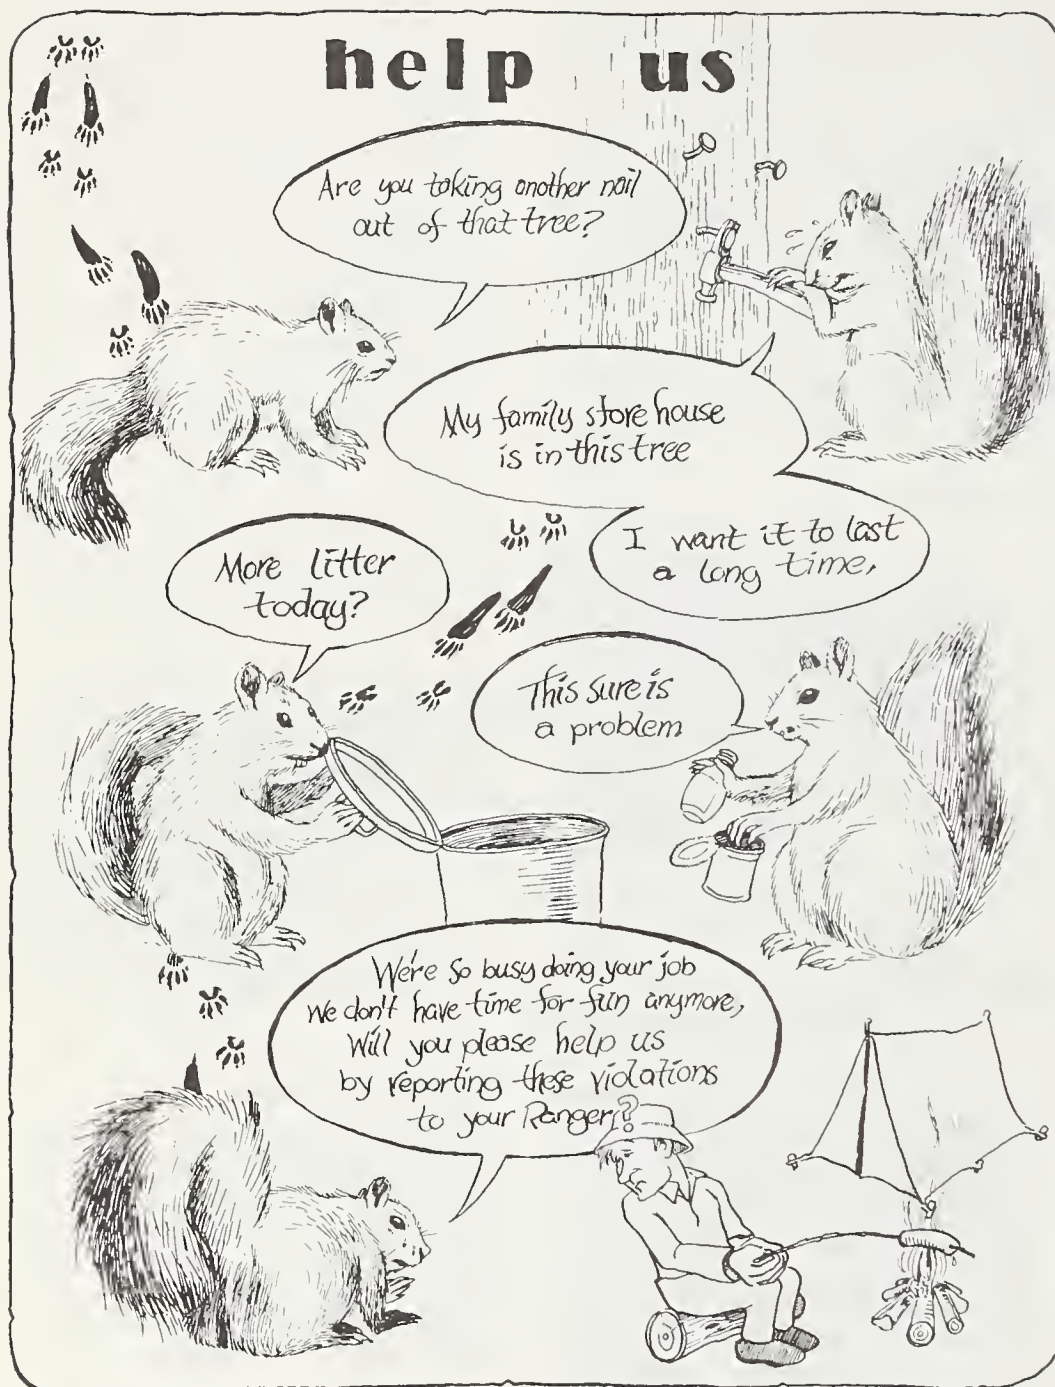 help us
Are you taking another nail
out of that tree?
My family store house
is in this tree
I want it to last
a long time,
More litter
today?
This sure is
a problem
We're so busy doing your job
we don't have time for fun anymore,
Will you please help us
by reporting these violations
to your Ranger?